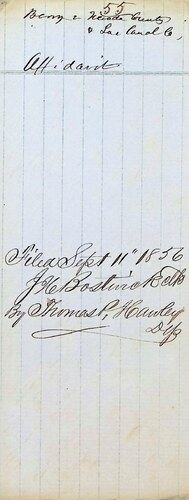 55
Berry & Nevada County
& Lac Canal Co,
Affidavit
Filed Sept 11" 1856
J H Bostwick Clk
By Thomas P, Hawley
Dy